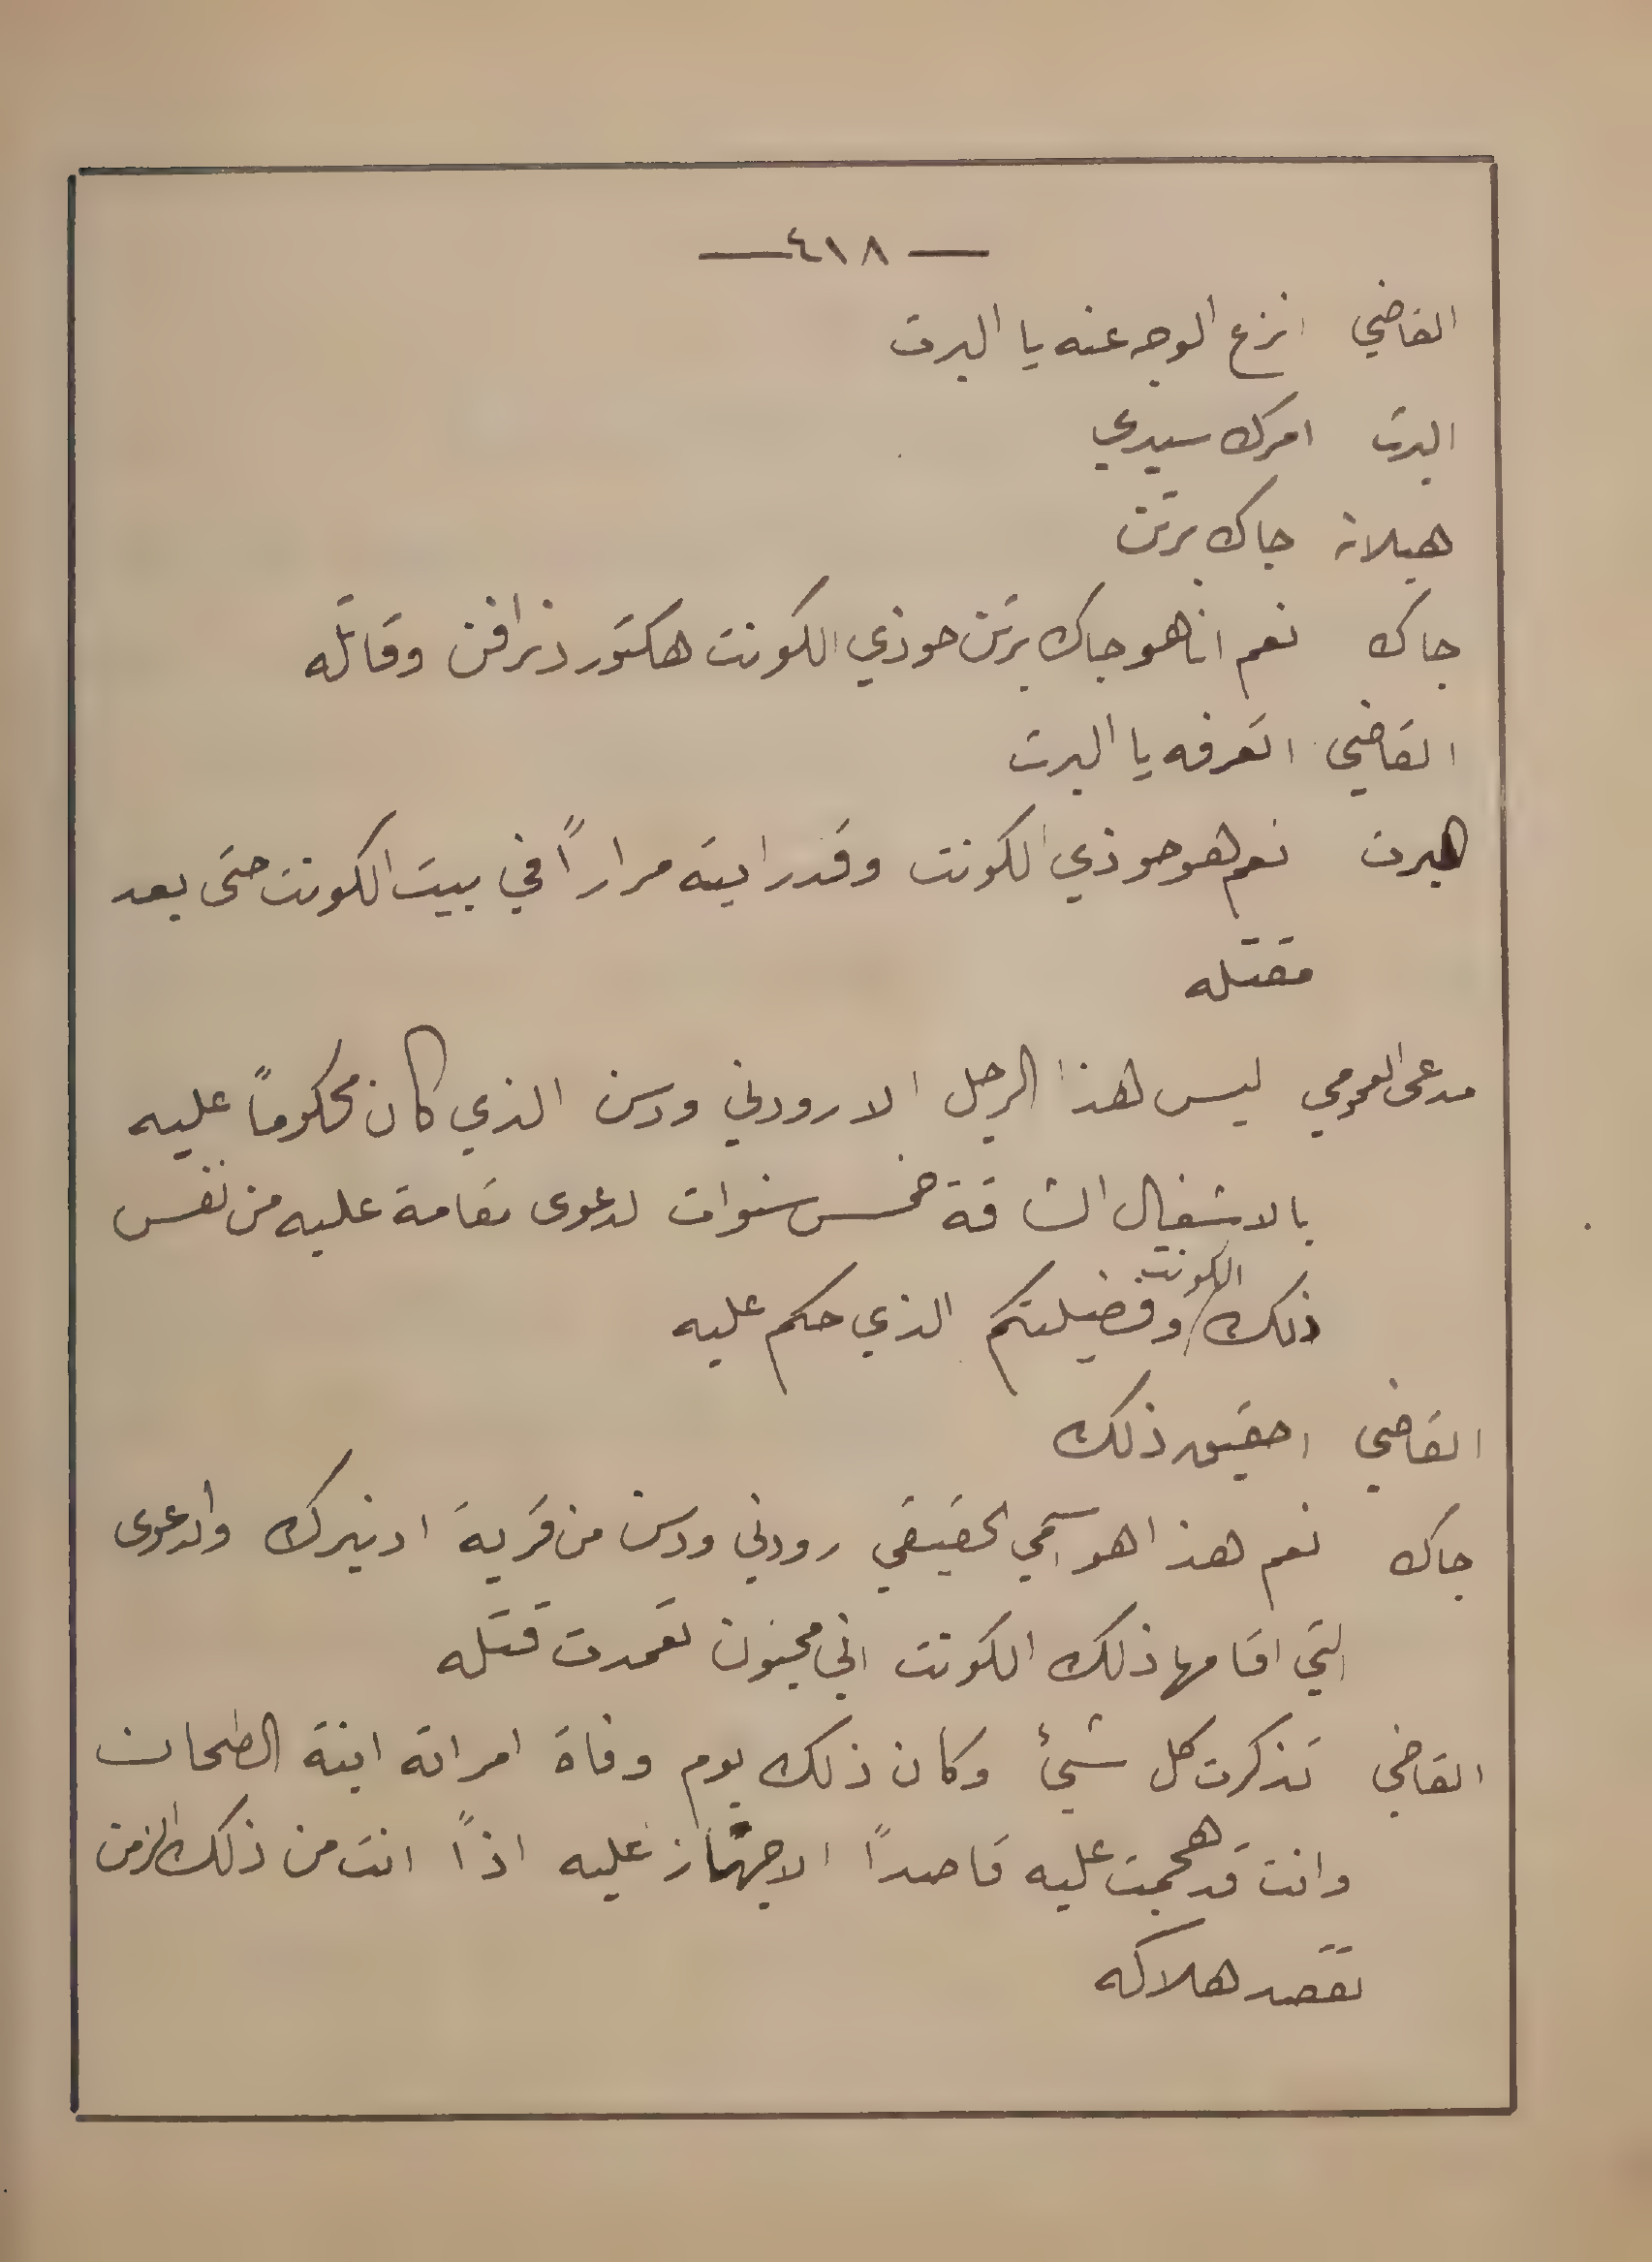 — ٤١٨ —
القاضي انزع الوجه عنه يا البرت
البرت امرك سيدي
هيلانة جاك برتن
جاك نعم انا هو جاك برتن حوذي الكونت هكتور دنرافن وقاتله
القاضي اتعرفه يا البرت
البرت نعم هو حوذي الكونت وقد رايته مراراً في بيت الكونت حتى بعد
مقتله
مدعى العمومي ليس هذا الرجل الا رودني ودسن الذي كان محكوماً عليه
بالاشغال الشاقة خمس سنوات لدعوى مقامة عليه من نفس
ذلك الكونت وفضيلتكم الذي حكم عليه
القاضي احقيق ذلك
جاك نعم هذا هو اسمي الحقيقي رودني ودسن من قرية ادنبرك والدعوى
التي اقامها ذلك الكونت اني مجنون تعمدت قتله
القاضي تذكرت كل شيئ وكان ذلك يوم وفاة امراته ابنة الطحان
وانت قد هجمت عليه قاصداً الاجهاز عليه اذاً انت من ذلك الزمن
تقصد هلاكه